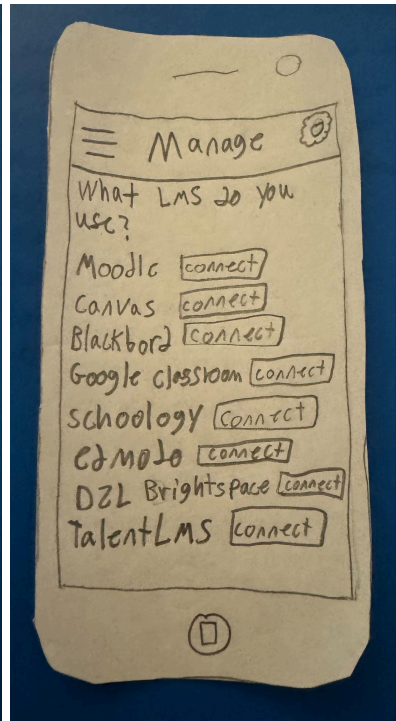 Manage
What LMS do you
use?
Moodle connect
Canvas connect
Blackbord connect
Google classroom connect
schoology connect
edmodo connect
D2L Brightspace connect
TalentLMS connect